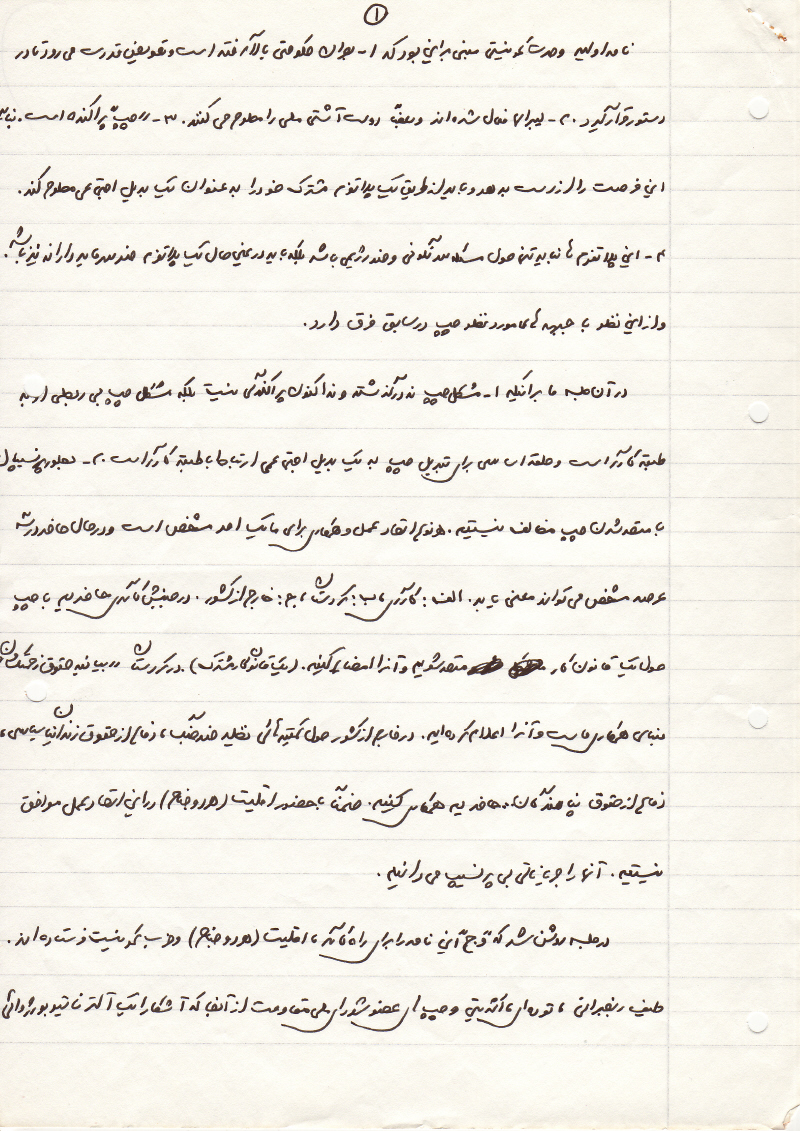 ①
نامه اولیه وحدت کمونیستی مبنی براین بود که ۱- بحران حکومتی بالا گرفته است و تعویض قدرت می رود تا در
دستور قرار گیرد. ۲- لیبرالها فعال شده اند و بعضاً دولت آشتی ملی را مطرح می کنند. ۳- "چپ" پراکنده است.
این فرصت را از دست بدهد و باید از طریق یک پلاتفرم مشترک خود را به عنوان یک بدیل اجتماعی مطرح کند.
۴- این پلاتفرم نباید تنها حول مسئله دموکراتیک و ضد رژیمی باشد بلکه باید در عین حال یک پلاتفرم ضد سرمایه دارانه نیز باشد.
و از این نظر با جبهه های مورد نظر چپ در سابق فرق دارد.
در آن جلسه ما بر اینکه ۱- مشکل چپ نه در گذشته و نه اکنون پراکندگی نیست بلکه مشکل چپ بی ربطی او به
طبقه کارگر است و حلقه اساسی برای تبدیل چپ به یک بدیل اجتماعی ارتباط با طبقه کارگر است. ۲- بطور پرنسیپال
با متحد شدن چپ مخالف نیستیم. هر نوع اتحاد عمل و همکاری برای ما یک امر مشخص است و در حال حاضر در سه
عرصه مشخص می تواند معنی یابد. الف: کارگری، ب: کردستان، ج: خارج از کشور. در جنبش کارگری حاضریم با چپ
حول یک قانون کار متحد شویم و آنرا امضا کنیم. (یک قانون کار مشترک). در کردستان بیانیه حقوق زحمتکشان
مبنای همکاری ماست و آنرا اعلام کرده ایم. در خارج از کشور حول کمیته هائی نظیر ضد جنگ، دفاع از حقوق زندانیان سیاسی،
دفاع از حقوق پناهندگان، حاضریم همکاری کنیم. ضمناً با حضور اقلیت (هر دو جناح) در این اتحاد عمل موافق
نیستیم. آنها را جریاناتی بی پرنسیپ می دانیم.
در جلسه روشن شد که "و ج" این نامه را برای راه کارگر، اقلیت (هر دو جناح) و حزب کمونیست فرستاده اند.
طیف رنجبران، توده ای، اکثریتی و چپ های عضو شورای ملی مقاومت از آنجا که آشکارا یک آلترناتیو بورژوائی